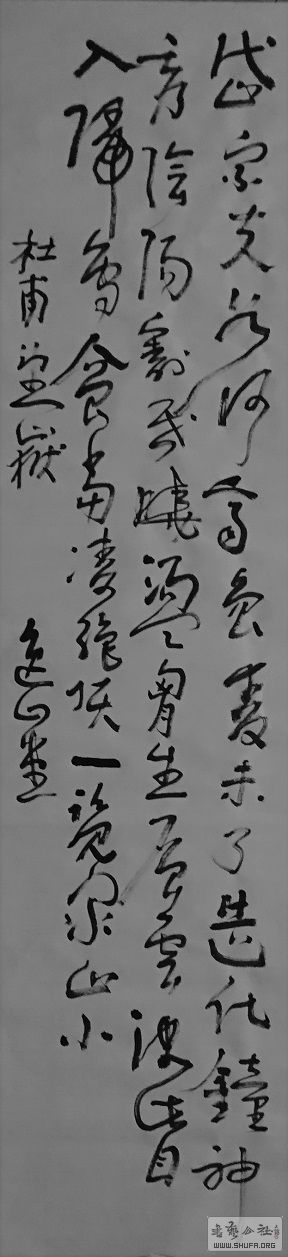 岱宗夫如何齊魯青未了造化鐘神
秀陰陽割昏曉盪胸生層雲決眥
入歸鳥會當凌絕頂一覽眾山小
杜甫望嶽
WWW.SHUFA.ORG